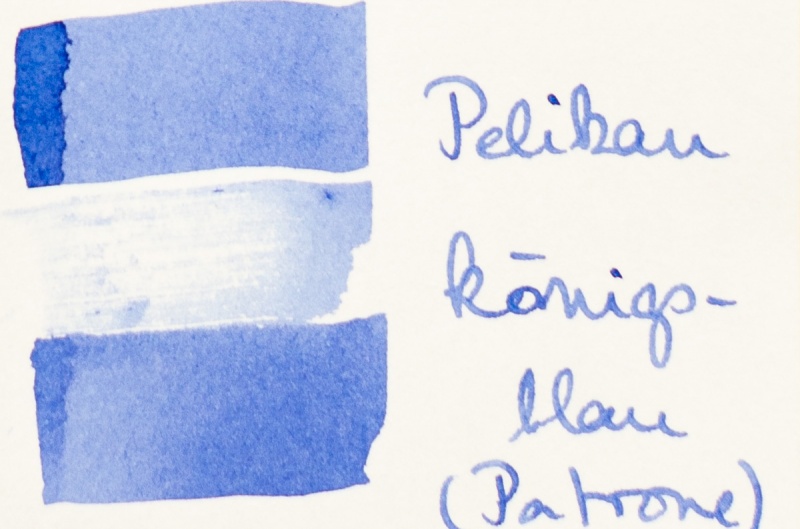 Pelikan
königs-
blau
(Patrone)